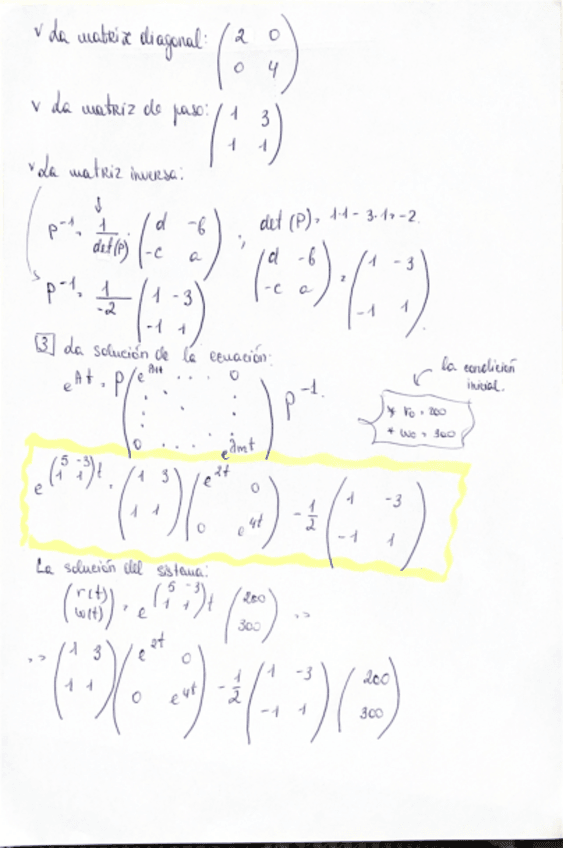 √ La matriz diagonal: (2 0
0 4)
√ La matriz de paso: (1 3
1 1)
√ La matriz inversa:
↓
P⁻¹ = 1/det(P) · (d -b ; -c a) ; det (P) = 1·1 - 3·1 = -2.
(d -b ; -c a) = (1 -3 ; -1 1).
P⁻¹ = 1/-2 (1 -3 ; -1 1)
3 La solución de la ecuación:
la condición
inicial.
e^At = P (e^λ1t . . . 0 ; . . . ; 0 . . . . e^λmt) P⁻¹.
* r₀ = 200
* w₀ = 300
e^(5 -3 ; 1 1)t = (1 3 ; 1 1) (e^2t 0 ; 0 e^4t) -1/2 (1 -3 ; -1 1)
La solución del sistema:
(r(t) ; w(t)) = e^(5 -3 ; 1 1)t (200 ; 300) =>
=> (1 3 ; 1 1) (e^2t 0 ; 0 e^4t) -1/2 (1 -3 ; -1 1) (200 ; 300)